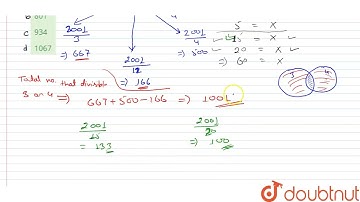 b 607
c 934
d 1067
2001/3
⇒ 667
2001/12
⇒ 166
4
2001/4
⇒ 500
5 = X
15 = X
20 = X
⇒ 60 = X
Total no. that divisible
3 or 4 ⇒ 667 + 500 - 166 ⇒ 1001
3 4
2001/15
= 133
2001/20
⇒ 100
doubtnut